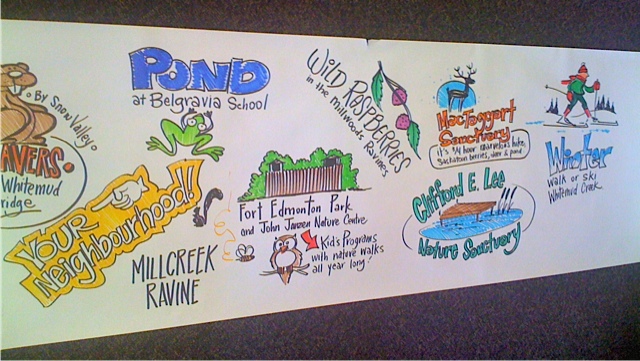 By Snow Valley
AVERS.
Whitemud
ridge
POND
at Belgravia School
YOUR
Neighbourhood!!
MILLCREEK
RAVINE
Fort Edmonton Park
and John Janzen Nature Centre
Kid's Programs
with nature walks
all year long!
WILD RASPBERRIES
in the Millwoods Ravines
MacTaggart
Sanctuary
it's 3/4 hour
Saskatoon berries, view & pond
Clifford E. Lee
Nature Sanctuary
Winter
walk or ski
Whitemud Creek